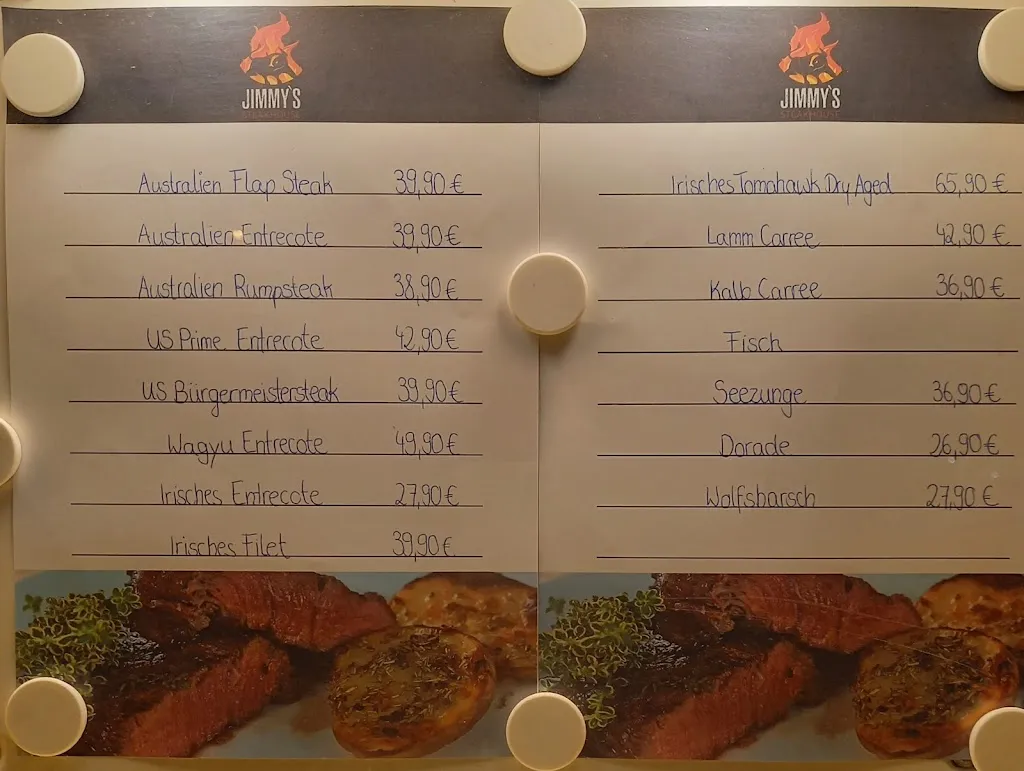 JIMMY'S
STEAKHOUSE
Australien Flap Steak 39,90 €
Australien Entrecote 39,90 €
Australien Rumpsteak 38,90 €
US Prime Entrecote 42,90 €
US Bürgermeistersteak 39,90 €
Wagyu Entrecote 49,90 €
Irisches Entrecote 27,90 €
Irisches Filet 39,90 €
JIMMY'S
STEAKHOUSE
Irisches Tomahawk Dry Aged 65,90 €
Lamm Carree 42,90 €
Kalb Carree 36,90 €
Fisch
Seezunge 36,90 €
Dorade 26,90 €
Wolfsbarsch 27,90 €